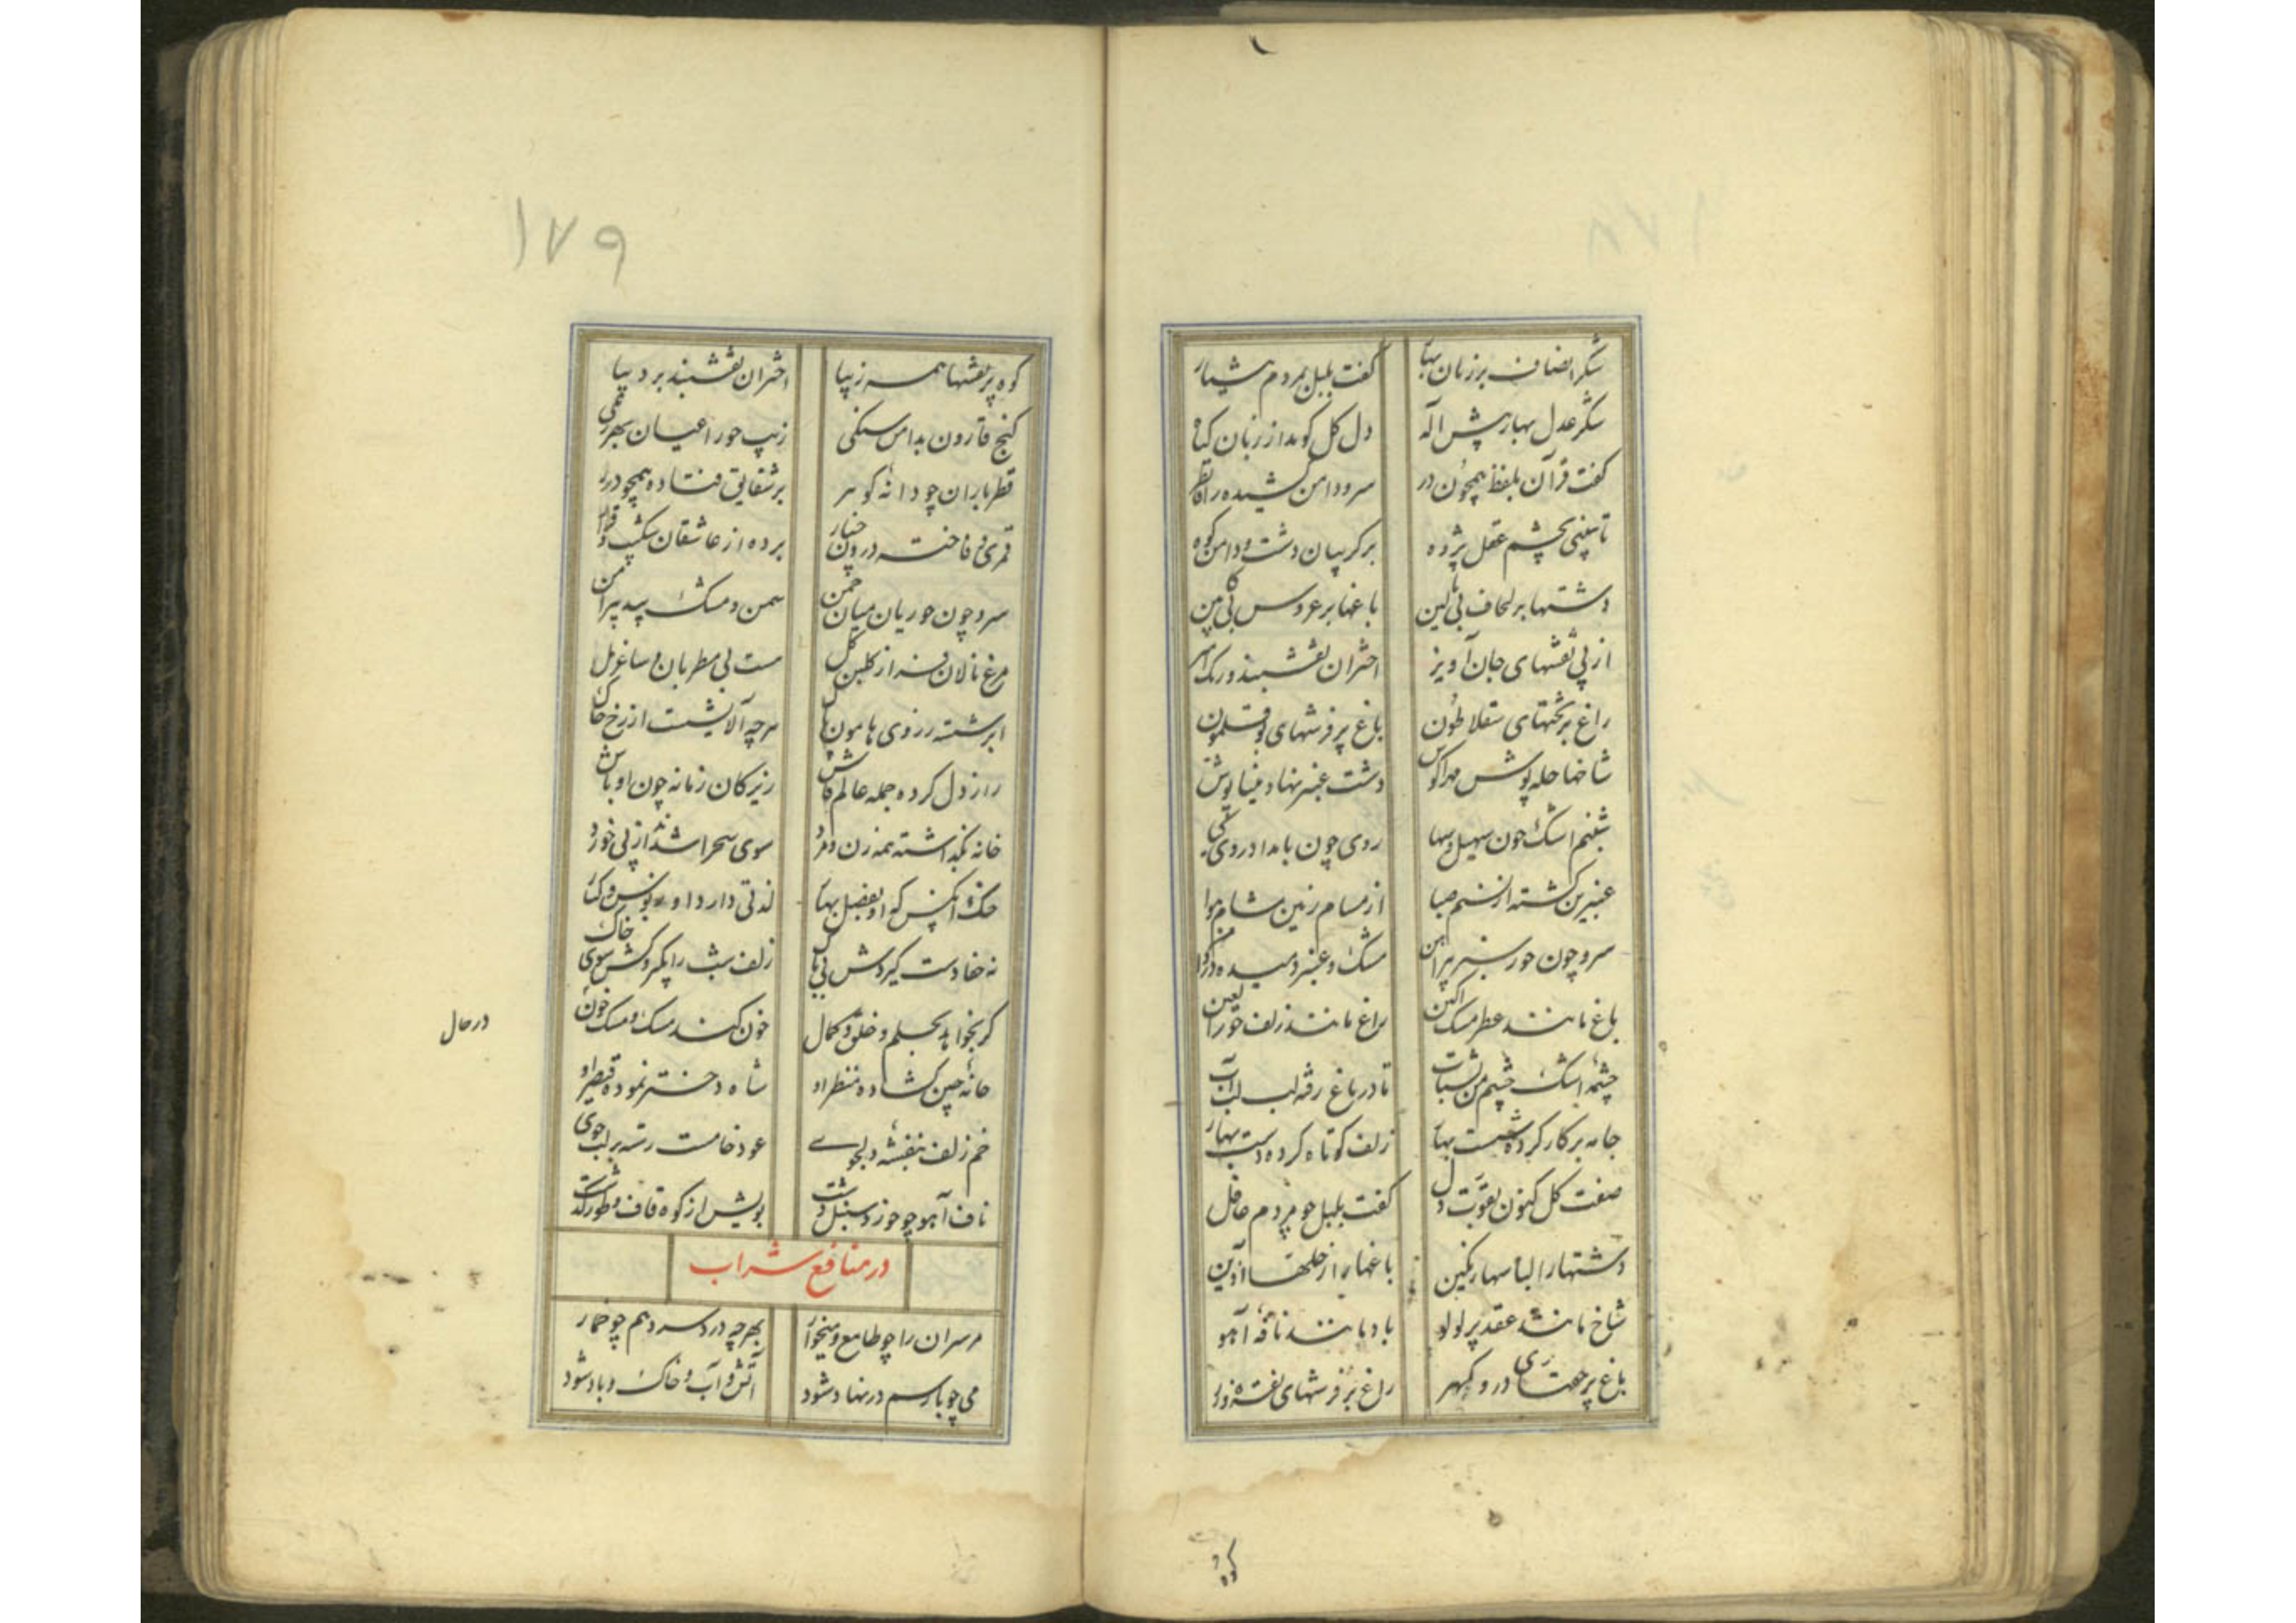 شکر انصاف بر زبان بهار گفت بلبل بمردم هشیار
شکر عدل بهار پیش اله دل گل گوید از زبان گیاه
گفت قرآن بلفظ همچون در سرو دامن کشیده راه نظر
تا ببینی بچشم عقل پژوه بر گریبان دشت و دامن کوه
دشتها بر لحاف بی بالین باغها بر عروس بی کابین
از پی نقشهای جان آویز اختران نقشبند و رنگ آمیز
راغ پر تختهای سقلاطون باغ پر فرشهای بوقلمون
شاخها حله پوش دشت عنبر نهاد مینا پوش
شبنم اشک چون سهیل و سها روی چون بامداد روی
عنبرین گشته از نسیم صبا از مسام زمین مشام هوا
سرو چون حور سبز پیراهن مشک و عنبر دمیده
باغ مانند عطر مشک آگین راغ مانند زلف حورالعین
چشمه اشک چشم من بشتاب تا در باغ رفته لب لب آب
جامه پرکار کرده شست بهار زلف کوتاه کرده دست بهار
صفت گل کنون بقوت دل گفت بلبل چو مردم عاقل
دشتها را لباسها رنگین باغها پر از حلها آذین
شاخ مانند عقد پر لولو باد مانند نافه آهو
باغ پر جفتهای در و گهر راغ پر فرشهای نقره و زر
۱۷۹
کوه پر نقشها همه زیبا اختران نقشبند بر دیبا
گنج قارون بدامن سنگی زیب حورا عیان بهر رنگی
قطر باران چو دانه گوهر بر شقایق فتاده همچو درر
قمری و فاخته درون چنار برده از عاشقان شکیب و قرار
سرو چون حوریان میان چمن سمن و مشک بید پیرامن
مرغ نالان فراز گلبن گل مست بی مطربان و ساغر مل
ابر شسته ز روی هامون پاک هرچه آلایشست از رخ خاک
راز دل کرده جمله عالم فاش زیرکان زمانه چون اوباش
خانه بگذاشته همه زن و مرد سوی صحرا شده از پی خورد
خنک آنکس که او بفصل بهار لذتی دارد از بوس و کنار
نه خفا دست گیردش بی باک زلف شب را بگیر و کش سوی خاک
گر بخواهد بحلم و خلق و کمال خون کند مشک و مشک خون
در حال
خانه چین گشاده منظر او شاه دختر نموده قیصر او
خم زلف بنفشه دلجوی عود خامست رسته بر لب جوی
ناف آهو چو خوزد سنبل دشت بویش از کوه قاف و طور گذشت
در منافع شراب
مر سران را چو طامع و میخوار بهرچه درد سر دهم چو خمار
می چو با رسم در نهاد شود آتش و آب و خاک و باد شود
کوه